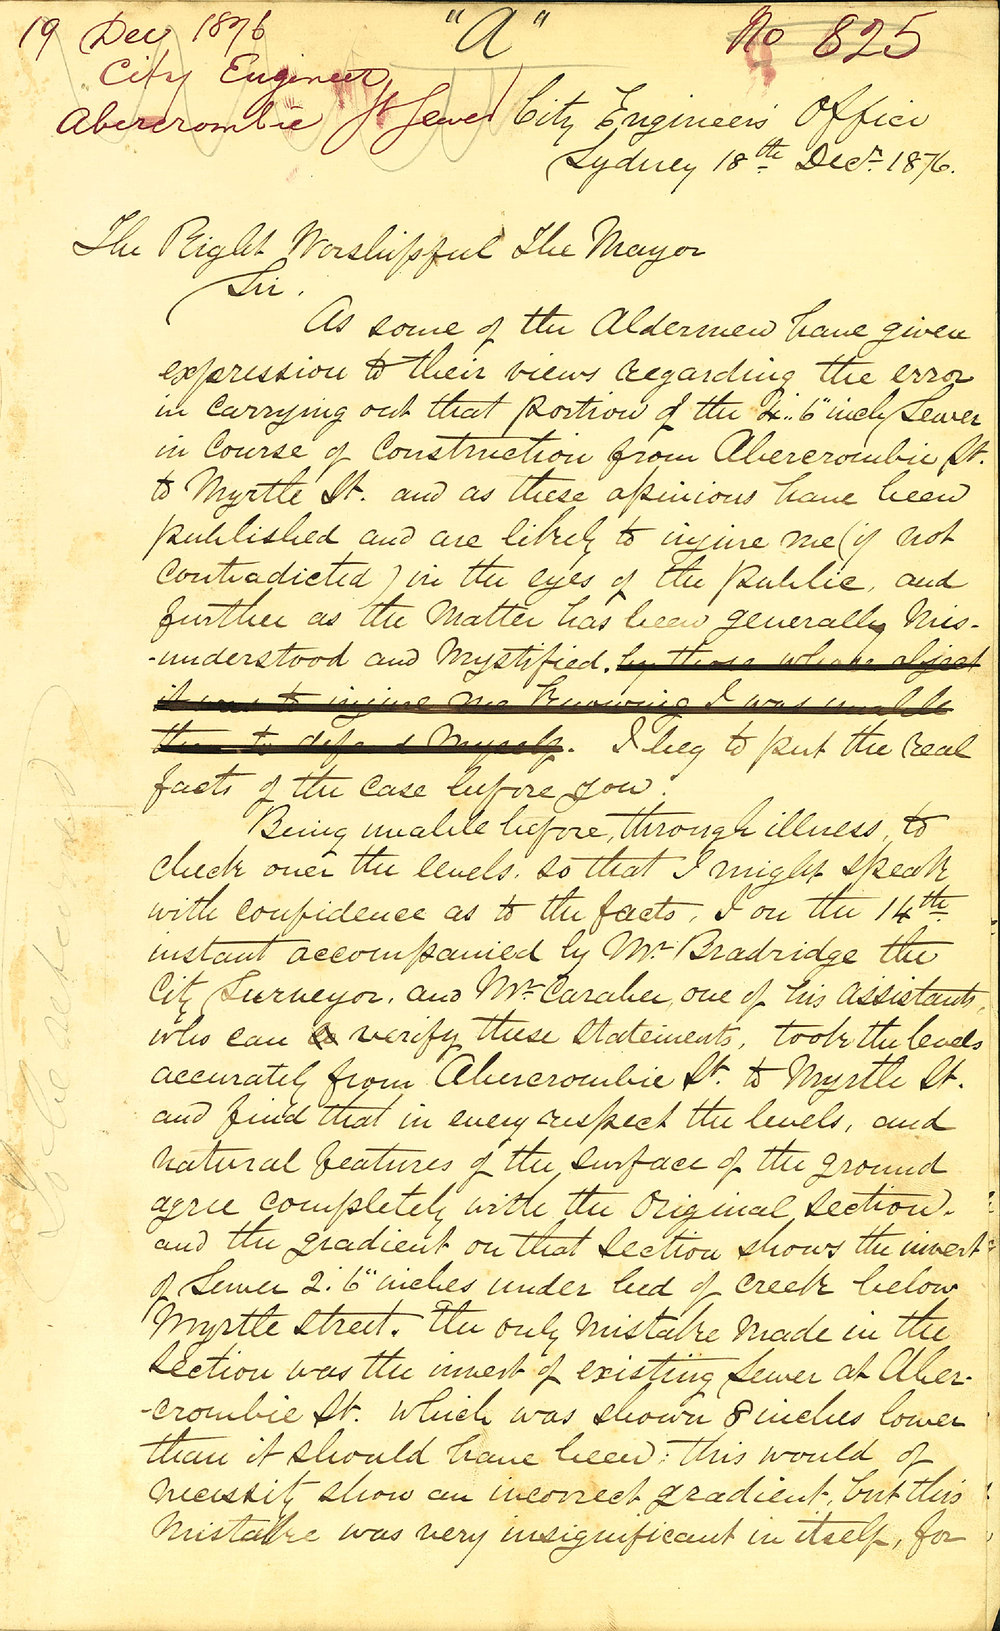 19 Dec 1876
"A"
No 825
City Engineer
Abercrombie St Sewer
City Engineer's Office
Sydney 18th Decr 1876.
The Right Worshipful The Mayor
Sir.
As some of the Aldermen have given
expression to their views regarding the error
in carrying out that portion of the 4'..6" inch Sewer
in course of Construction from Abercrombie St.
to Myrtle St. and as these opinions have been
published and are likely to injure me (if not
contradicted) in the eyes of the public, and
further as the Matter has been generally Mis-
-understood and Mystified. by those whose object
it was to injure me knowing I was unable
then to defend Myself. I beg to put the real
facts of the case before you.
Being unable before, through illness, to
check over the levels. so that I might speak
with confidence as to the facts, I on the 14th
instant accompanied by Mr Bradridge the
City Surveyor, and Mr Caraher, one of his assistants,
who can verify these statements, took the levels
accurately from Abercrombie St. to Myrtle St.
and find that in every respect the levels, and
natural features of the surface of the ground
agree completely with the Original Section.
and the gradient on that section shows the invert
of Sewer 2'.6" inches under bed of creek below
Myrtle Street. The only Mistake Made in the
Section was the invert of existing Sewer at Aber-
-crombie St. which was shown 8 inches lower
than it should have been; this would of
necessity show an incorrect gradient, but this
Mistake was very insignificant in itself, for